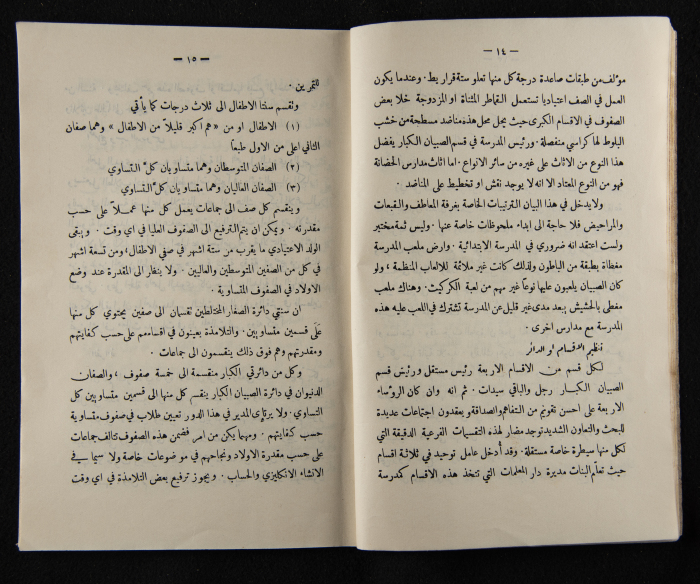 — ١٤ —
مؤلف من طبقات صاعدة درجة كل منها تعلو ستة قراريط. وعندما يكون
العمل في الصف اعتياديا تستعمل القماطر المثناة او المزدوجة خلا بعض
الصفوف في الاقسام الكبرى حيث يحل محل هذه مناضد مسطحة من خشب
البلوط لها كراسي منفصلة. ورئيس المدرسة في قسم الصبيان الكبار يفضل
هذا النوع من الاثاث على غيره من سائر الانواع. اما اثاث مدارس الحضانة
فهو من النوع المعتاد الا انه لا يوجد نقش او تخطيط على المناضد.
ولا يدخل في هذا البيان الترتيبات الخاصة بغرفة المعاطف والقبعات
والمراحيض فلا حاجة الى ابداء ملحوظات خاصة عنها. وليس ثمة مختبر
ولست اعتقد انه ضروري في المدرسة الابتدائية. وارض ملعب المدرسة
مغطاة بطبقة من الباطون ولذلك كانت غير ملائمة للالعاب المنظمة، ولو
كان الصبيان يلعبون عليها نوعاً غير مهم من لعبة الكركيت. وهناك ملعب
مغطى بالحشيش يبعد مدى غير قليل عن المدرسة تشترك في اللعب عليه هذه
المدرسة مع مدارس اخرى.
تنظيم الاقسام او الدوائر
لكل قسم من الاقسام الاربعة رئيس مستقل ورئيس قسم
الصبيان الكبار رجل والباقي سيدات. ثم انه وان كان الرؤساء
الاربعة على احسن تقويم من التفاهم والصداقة ويعقدون اجتماعات عديدة
للبحث والتعاون الشديد توجد مضار لهذه التقسيمات الفرعية الدقيقة التي
لكل منها سيطرة خاصة مستقلة. وقد أدخل عامل توحيد في ثلاثة اقسام
حيث تعلم البنات مديرة دار المعلمات التي تتخذ هذه الاقسام كمدرسة
— ١٥ —
للتمرين.
وتقسم سنتا الاطفال الى ثلاث درجات كما يأتي
(١) الاطفال او من «هم اكبر قليلاً من الاطفال» وهما صفان
الثاني اعلى من الاول طبعاً
(٢) الصفان المتوسطان وهما متساويان كل التساوي
(٣) الصفان العاليان وهما متساويان كل التساوي
وينقسم كل صف الى جماعات يعمل كل منها عملاً على حسب
مقدرته. ويمكن ان يتم الترفيع الى الصفوف العليا في اي وقت. ويبقى
الولد الاعتيادي ما يقرب من ستة اشهر في صفي الاطفال، ومن تسعة اشهر
في كل من الصفين المتوسطين والعاليين. ولا ينظر الى المقدرة عند وضع
الاولاد في الصفوف المتساوية.
ان سنتي دائرة الصغار المختلطين تقسمان الى صفين يحتوي كل منها
على قسمين متساويين. والتلامذة يعينون في اقسامهم على حسب كفايتهم
ومقدرتهم وهم فوق ذلك ينقسمون الى جماعات.
وكل من دائرتي الكبار منقسمة الى خمسة صفوف، والصفان
الدنيوان في دائرة الصبيان الكبار ينقسم كل منها الى قسمين متساويين كل
التساوي. ولا يرتاي المدير في هذا الدور تعيين طلاب في صفوف متساوية
حسب كفايتهم. ومهما يكن من امر فضمن هذه الصفوف تتالف جماعات
على حسب مقدرة الاولاد ونجاحهم في موضوعات خاصة ولا سيما في
الانشاء الانكليزي والحساب. ويجوز ترفيع بعض التلامذة في اي وقت